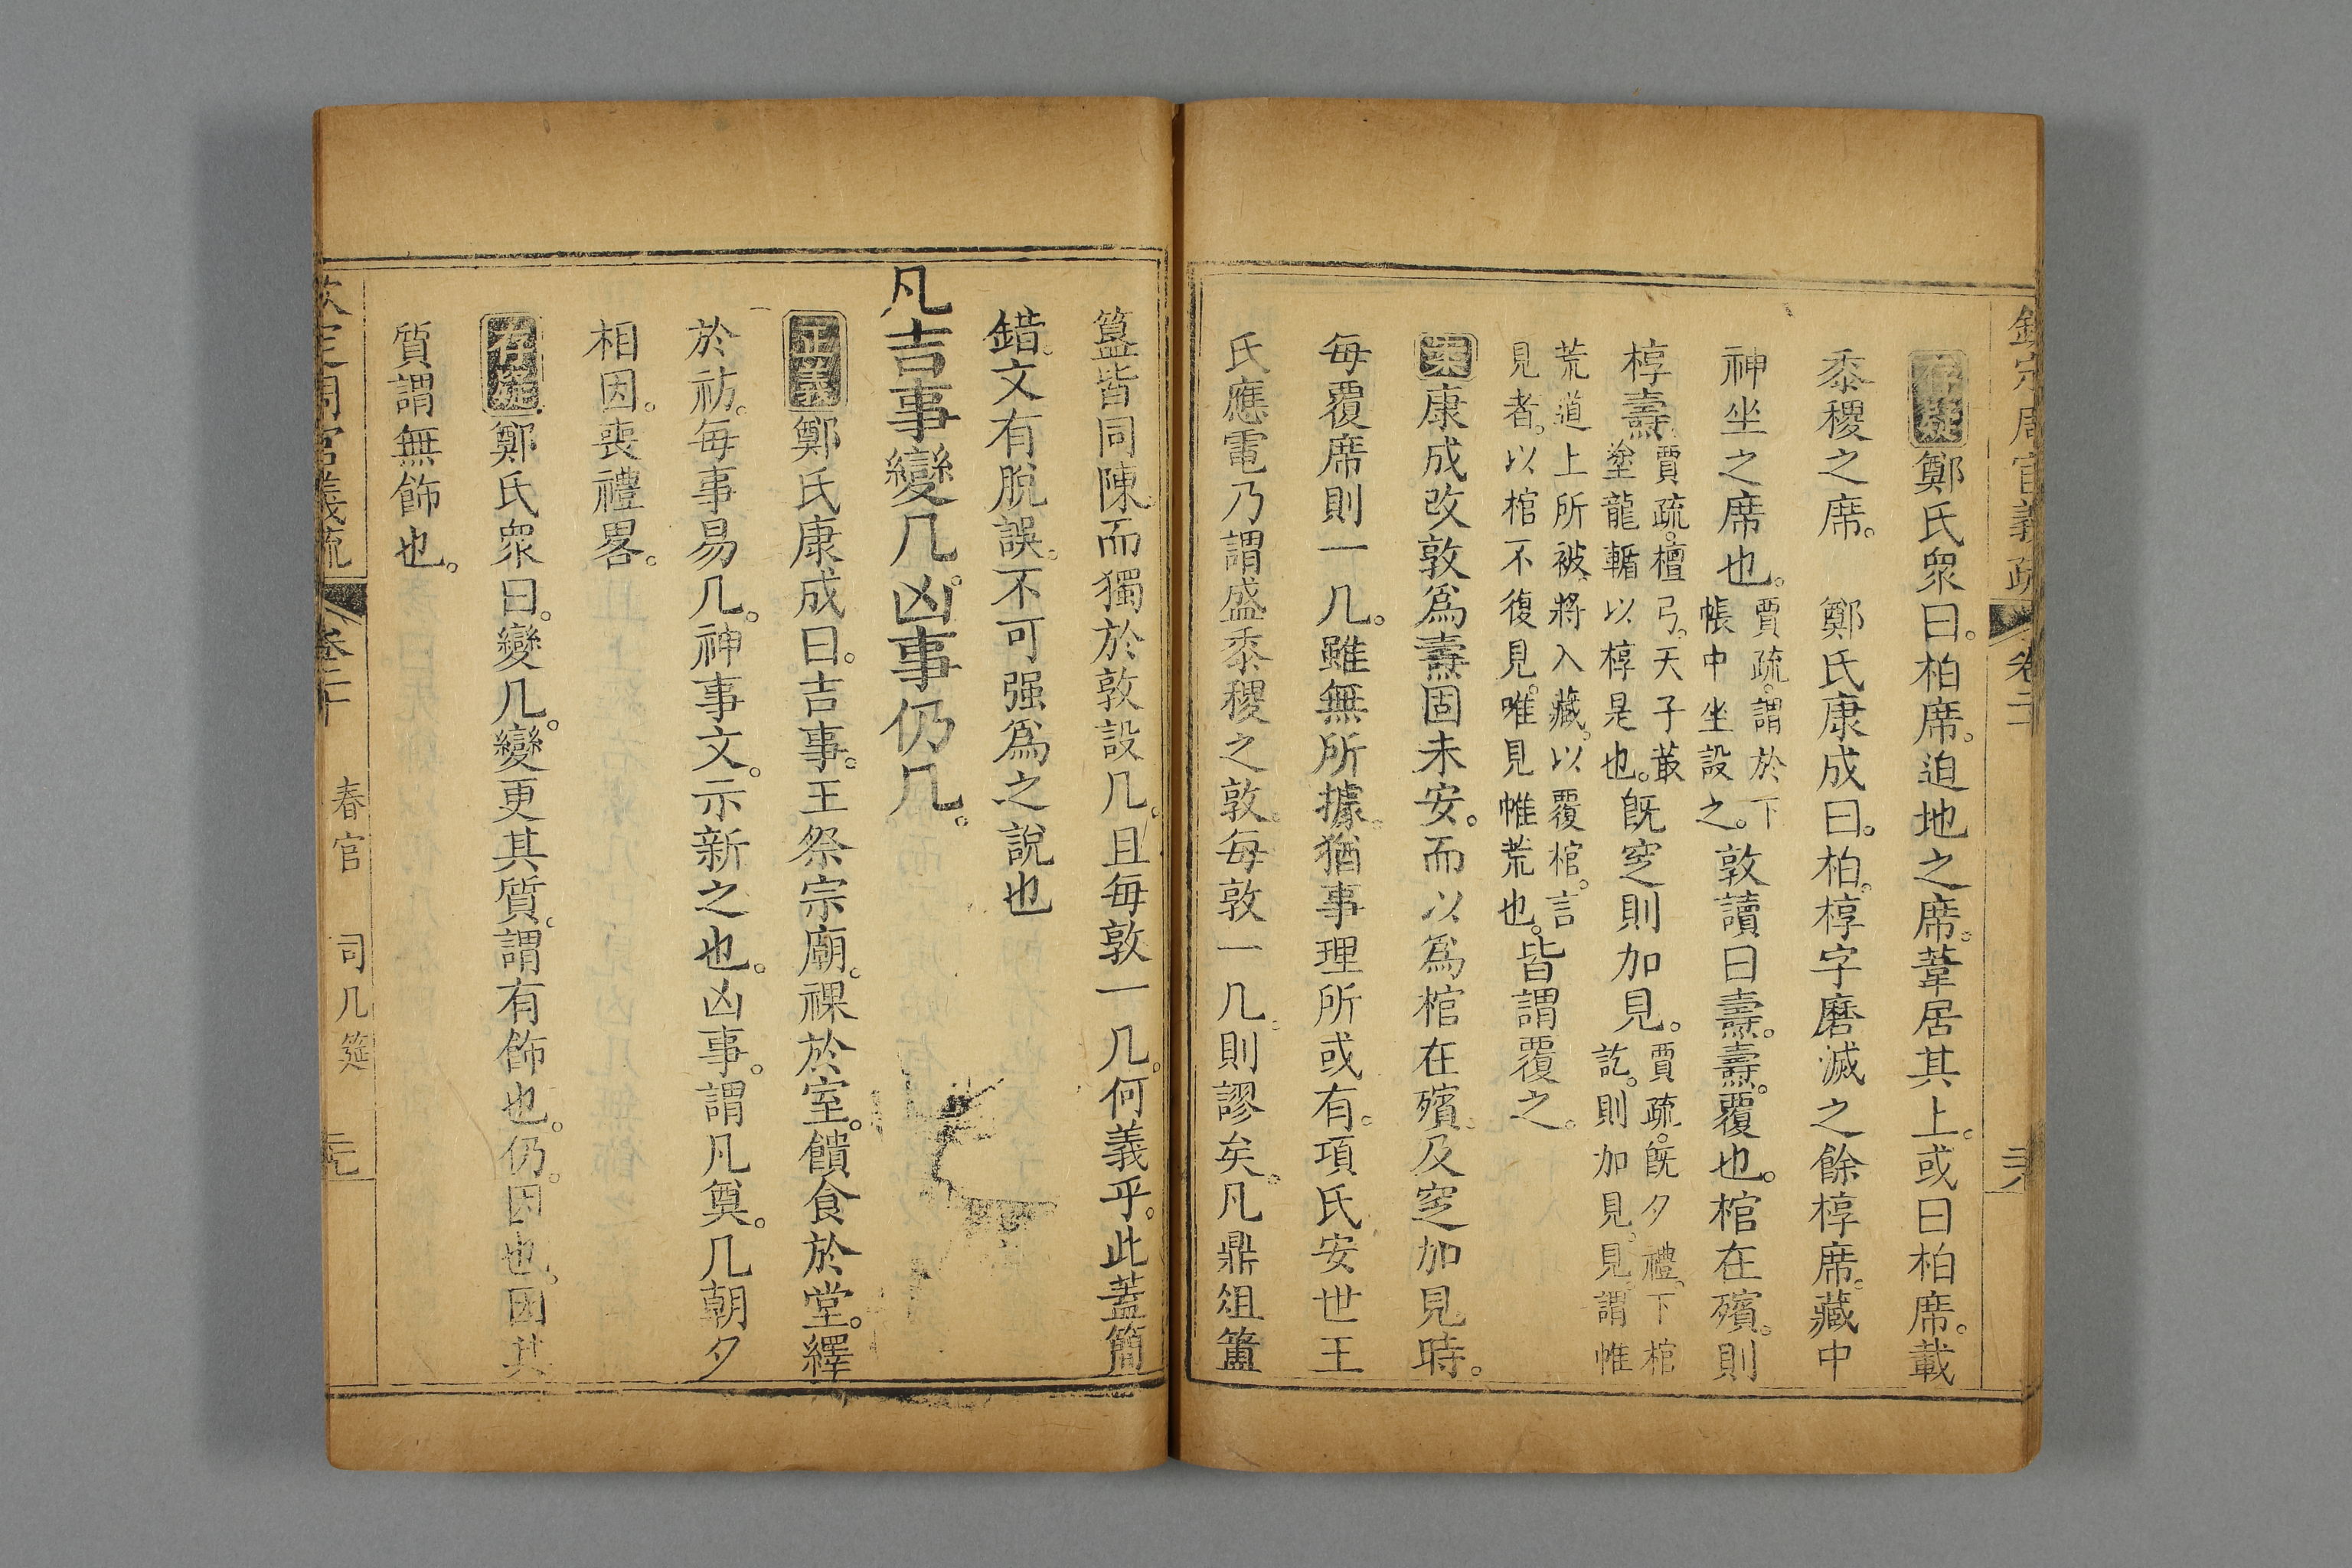 欽定周官義疏 卷二十
存疑鄭氏眾曰。柏席。迫地之席。葦居其上。或曰柏席。載
黍稷之席。 鄭氏康成曰。柏。椁字磨滅之餘椁席。藏中
神坐之席也。賈疏。謂於下帳中坐設之。敦讀曰燾。燾。覆也。棺在殯。則
椁燾。賈疏。檀弓。天子菆塗龍輴以椁是也。旣窆則加見。賈疏。旣夕禮。下棺訖。則加見。見。謂帷
荒。道上所被。將入藏。以覆棺。言見者。以棺不復見。唯見帷荒也。皆謂覆之。
案康成改敦爲燾固未安。而以爲棺在殯。及窆加見時。
每覆席則一几。雖無所據。猶事理所或有。項氏安世王
氏應電乃謂盛黍稷之敦。每敦一几。則謬矣。凡鼎俎簠
簋皆同陳。而獨於敦設几。且每敦一几。何義乎。此蓋簡
錯。文有脫誤。不可强爲之說也
凡吉事變几。凶事仍几。
正義鄭氏康成曰。吉事。王祭宗廟。祼於室。饋食於堂。繹
於祊。每事易几。神事文。示新之也。凶事。謂凡奠。几朝夕
相因。喪禮畧。
存疑鄭氏眾曰。變几。變更其質。謂有飾也。仍。因也。因其
質謂無飾也。
欽定周官義疏 卷二十 春官 司几筵